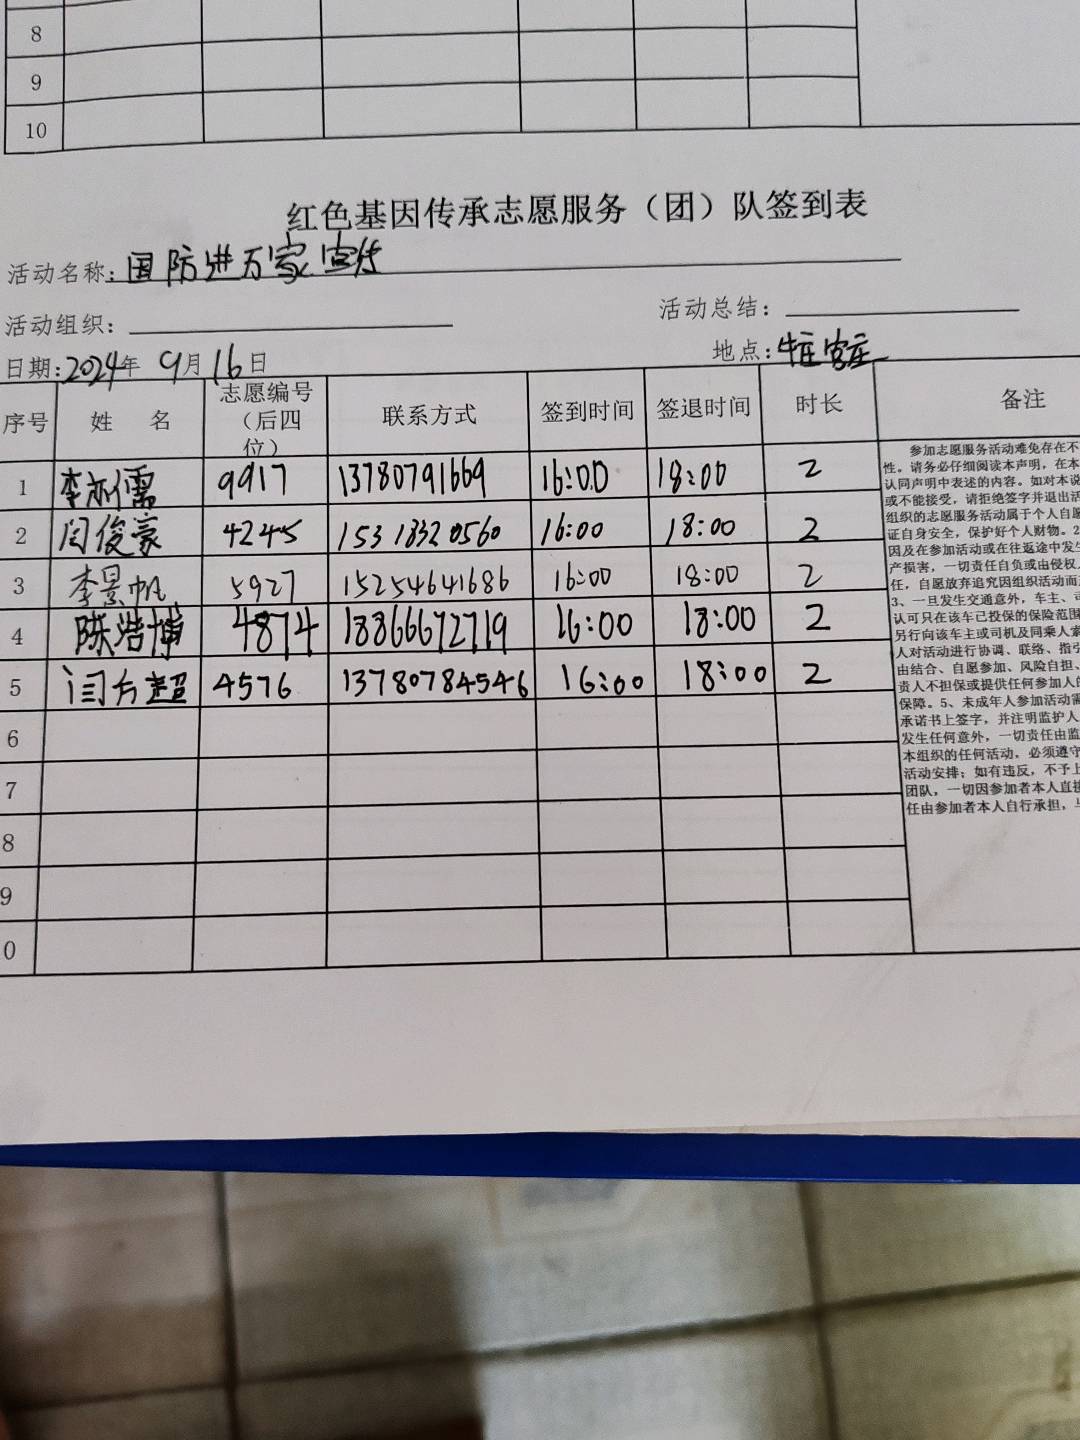 8
9
10
红色基因传承志愿服务（团）队签到表
活动名称：国防进万家宣传
活动组织：
活动总结：
日期：2024年 9月16日
地点：
序号 姓 名 志愿编号（后四位） 联系方式 签到时间 签退时间 时长 备注
1 李 儒 9917 13780791669 16:00 18:00 2
2 闫俊豪 4245 15318320560 16:00 18:00 2
3 李景帆 5927 15254641686 16:00 18:00 2
4 陈浩博 4874 18866672719 16:00 18:00 2
5 闫方超 4576 13780784546 16:00 18:00 2
6
7
8
9
0
参加志愿服务活动难免存在不
性。请务必仔细阅读本声明，在本
认同声明中表述的内容。如对本说
或不能接受，请拒绝签字并退出活
组织的志愿服务活动属于个人自愿
证自身安全，保护好个人财物。2
因及在参加活动或在往返途中发生
产损害，一切责任自负或由侵权
任，自愿放弃追究因组织活动而
3、一旦发生交通意外，车主、司
认可只在该车已投保的保险范围
另行向该车主或司机及同乘人索
人对活动进行协调、联络、指引
由结合、自愿参加、风险自担、
责人不担保或提供任何参加人的
保障。5、未成年人参加活动需
承诺书上签字，并注明监护人
发生任何意外，一切责任由监
本组织的任何活动，必须遵守
活动安排；如有违反，不予上
团队，一切因参加者本人直接
任由参加者本人自行承担，与